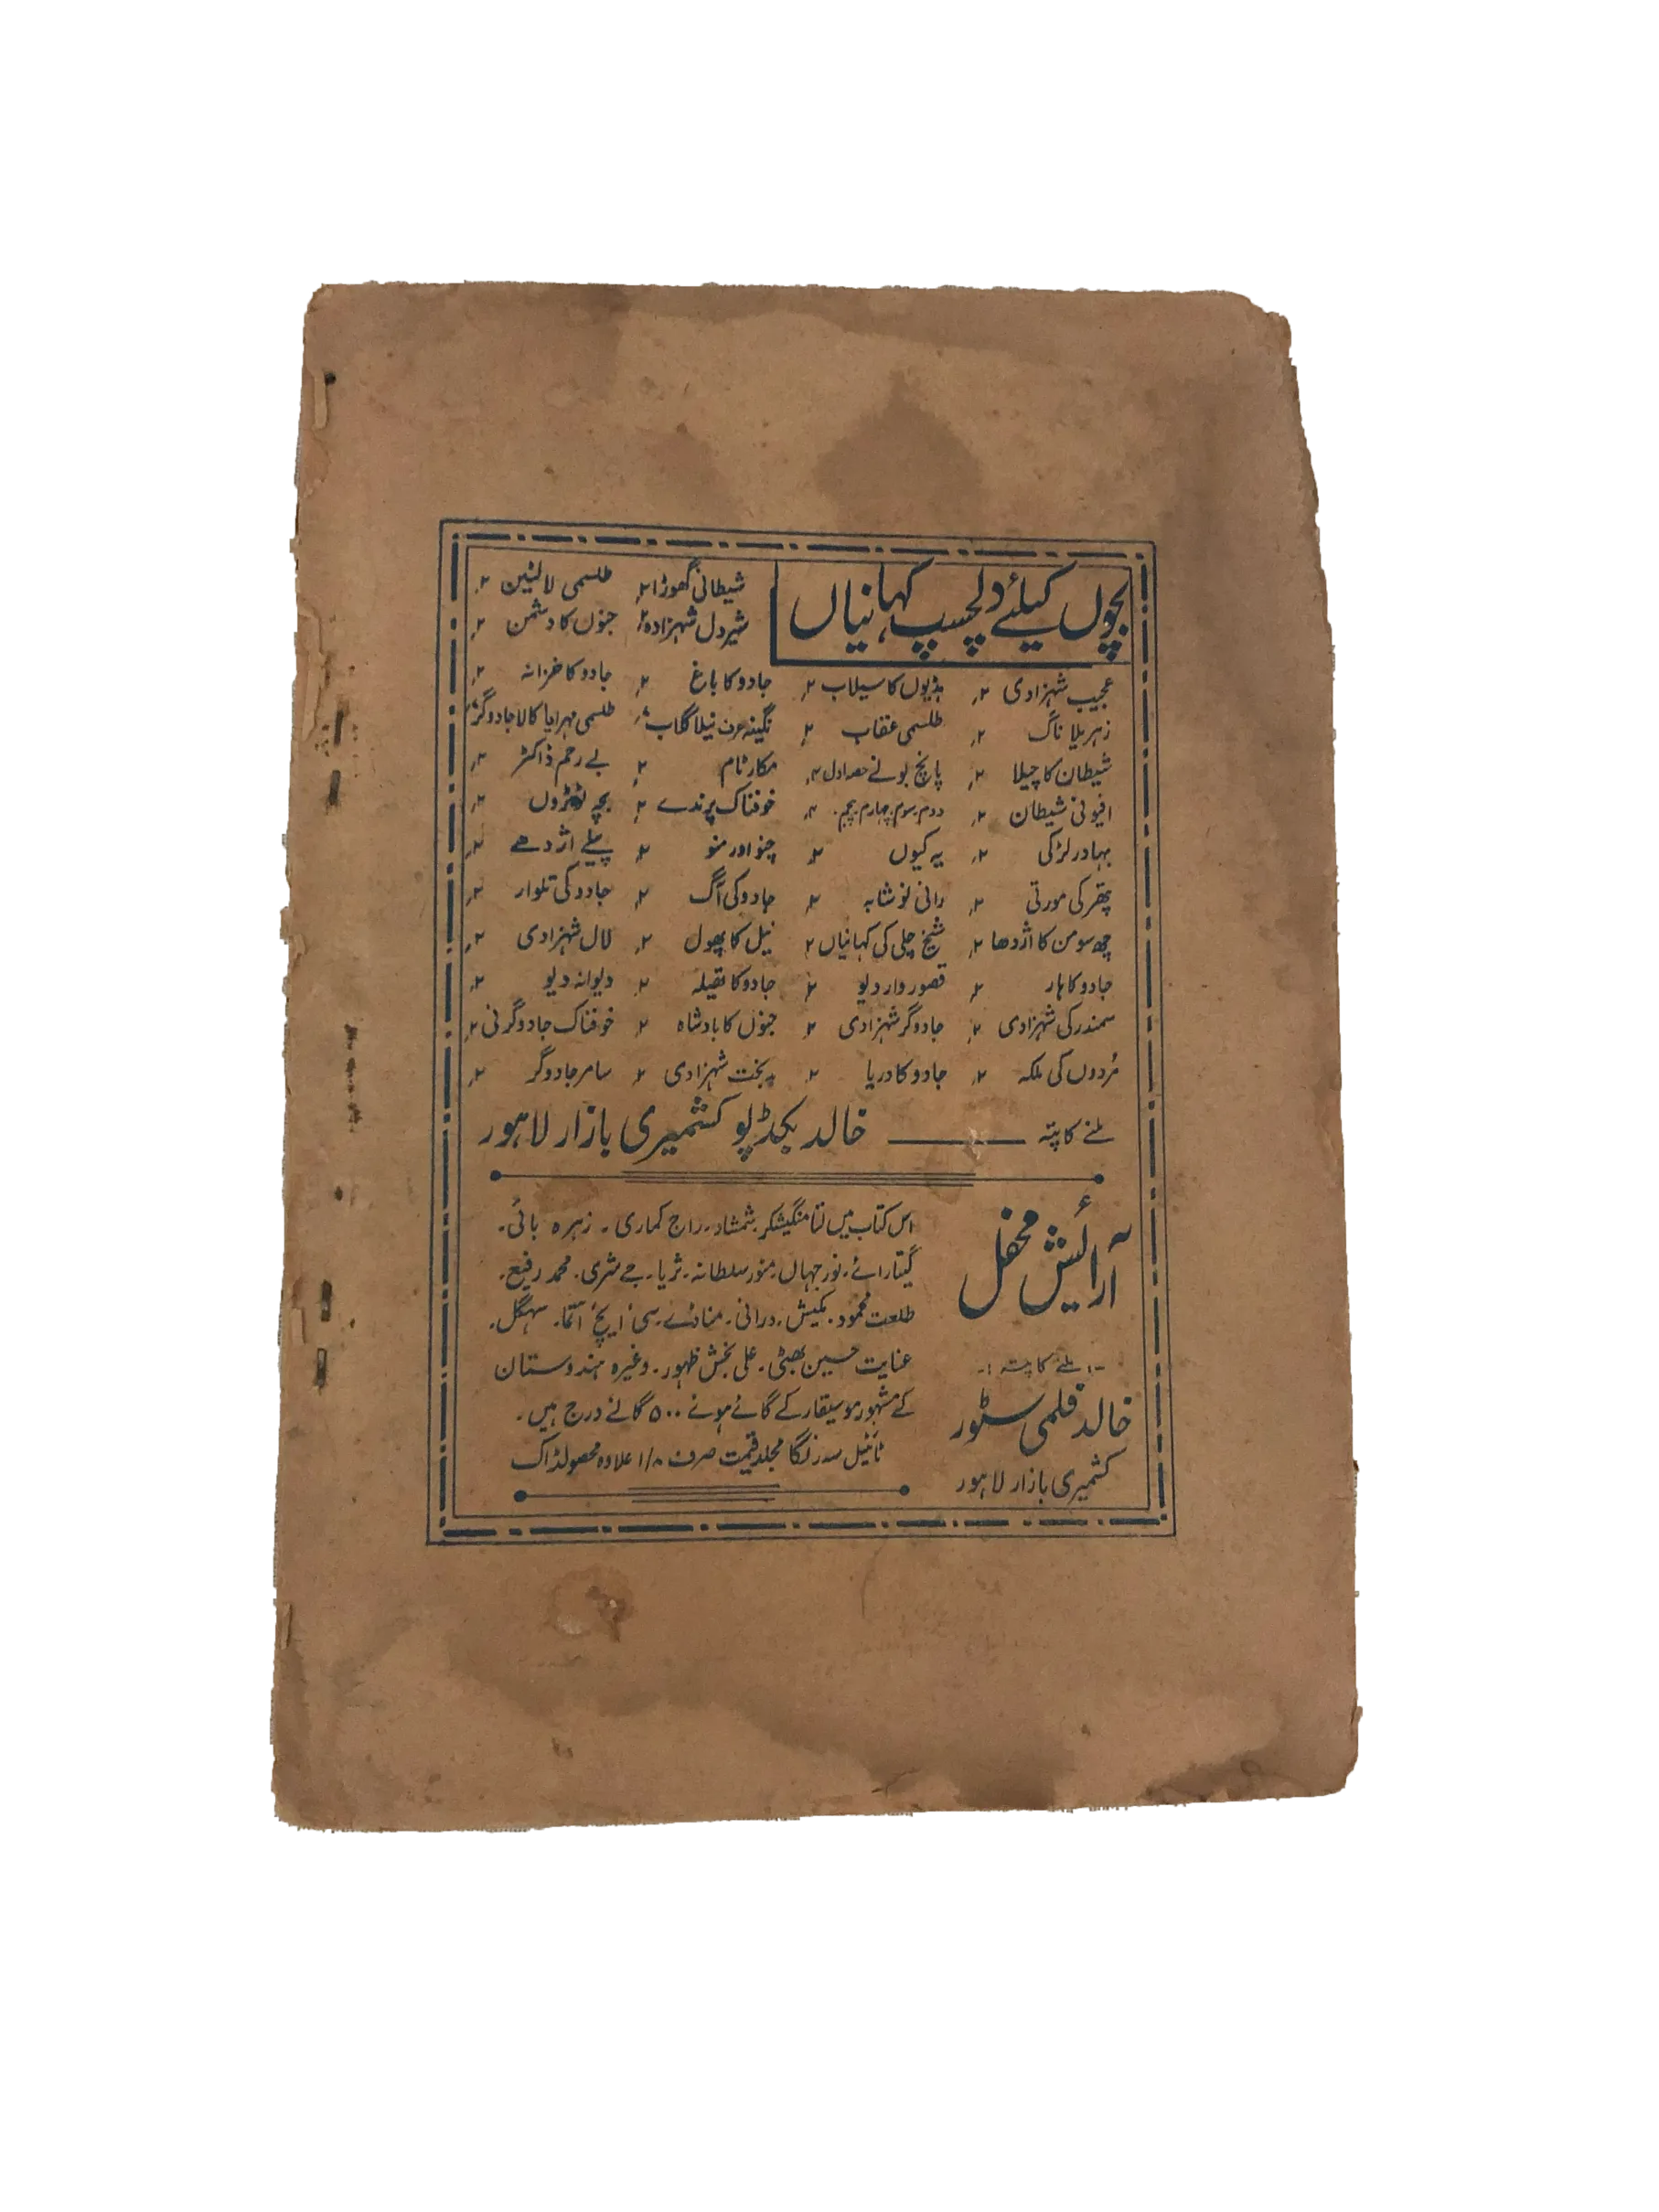 بچوں کیلئے دلچسپ کہانیاں
شیطانی گھوڑا ۲؍ طلسمی لالٹین ۲؍
شیر دل شہزادہ ۲؍ جنوں کا دشمن ۲؍
عجیب شہزادی ۲؍ ہڈیوں کا سیلاب ۲؍ جادو کا باغ ۲؍ جادو کا خزانہ ۲؍
زہریلا ناگ ۲؍ طلسمی عقاب ۲؍ نگینہ عرف نیلا گلاب طلسمی مہرا یا کالا جادوگر
شیطان کا چیلا ۲؍ پانچ بونے حصہ اول ۴؍ مکار ٹام ۲؍ بے رحم ڈاکٹر ۲؍
افیونی شیطان ۲؍ دوم۔ سوم۔ چہارم۔ پنجم۔ ۴؍ خوفناک پرندے ۲؍ بچہ ۲؍
بہادر لڑکی ۲؍ یہ کیوں ۲؍ چنو اور منو ۲؍ پیلے اژدھے ۲؍
پتھر کی مورتی ۲؍ رانی نوشابہ ۲؍ جادو کی آگ ۲؍ جادو کی تلوار ۲؍
چھ سو من کا اژدھا ۲؍ شیخ چلی کی کہانیاں ۲ نیل کا پھول ۲؍ لال شہزادی ۲؍
جادو کا ہار ۲؍ قصور وار دیو ۲؍ جادو کا تھیلہ ۲؍ دیوانہ دیو ۲؍
سمندر کی شہزادی ۲؍ جادوگر شہزادی ۲؍ جنوں کا بادشاہ ۲؍ خوفناک جادوگرنی ۲؍
مُردوں کی ملکہ ۲؍ جادو کا دریا ۲؍ بدبخت شہزادی ۲؍ سامر جادوگر ۲؍
ملنے کا پتہ ــــــ خالد بکڈپو کشمیری بازار لاہور
آرائیش محفل
-: ملنے کا پتہ :-
خالد فلمی سٹور
کشمیری بازار لاہور
اس کتاب میں لتا منگیشکر۔ شمشاد۔ راج کماری۔ زہرہ بائی۔
گیتا رائے۔ نور جہاں۔ منور سلطانہ۔ ثریا۔ جے شری۔ محمد رفیع۔
طلعت محمود۔ مکیش۔ درانی۔ منا ڈے۔ سی ایچ آتما۔ سہگل۔
عنایت حسین بھٹی۔ علی بخش ظہور۔ وغیرہ ہندوستان
کے مشہور موسیقار کے گائے ہوئے ۵۰۰ گانے درج ہیں۔
ٹائیٹل سہ رنگا مجلد قیمت صرف ۱/۸ علاوہ محصولڈاک